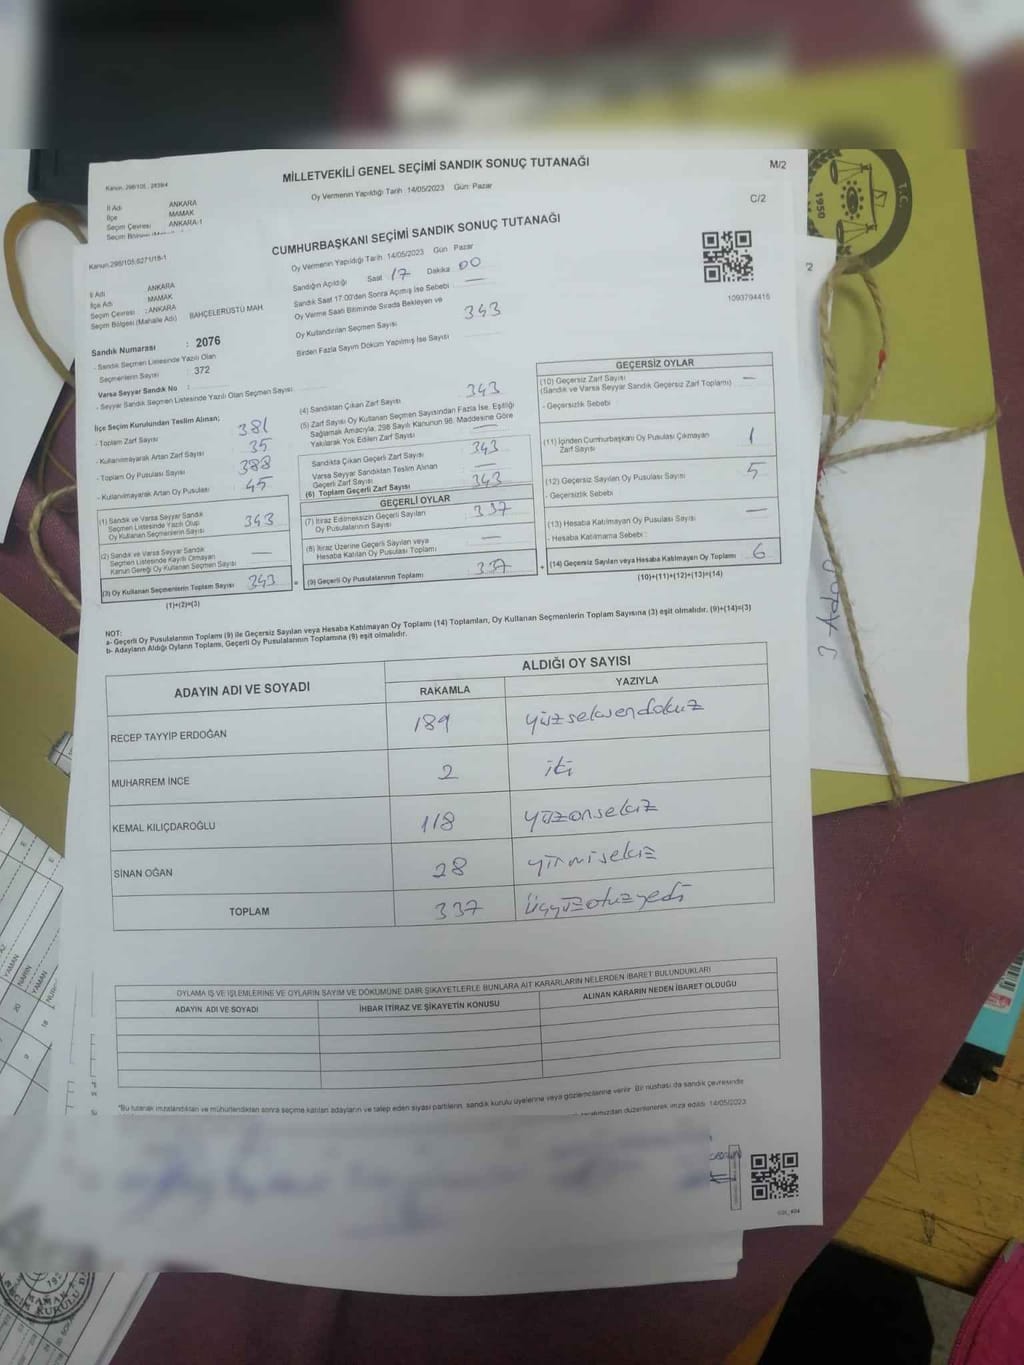 MİLLETVEKİLİ GENEL SEÇİMİ SANDIK SONUÇ TUTANAĞI
M/2
Oy Vermenin Yapıldığı Tarih : 14/05/2023 Gün: Pazar
İl Adı ANKARA
İlçe MAMAK
Seçim Çevresi : ANKARA-1
Seçim Bölgesi
C/2
CUMHURBAŞKANI SEÇİMİ SANDIK SONUÇ TUTANAĞI
Kanun:298/105,6271/18-1
Oy Vermenin Yapıldığı Tarih 14/05/2023 Gün Pazar
Sandığın Açıldığı Saat 17 Dakika 00
Sandık Saat 17:00'den Sonra Açılmış İse Sebebi —
Oy Verme Saati Bitiminde Sırada Bekleyen ve
Oy Kullandırılan Seçmen Sayısı 343
Birden Fazla Sayım Döküm Yapılmış İse Sayısı
1093794416
/2
İl Adı ANKARA
İlçe Adı MAMAK
Seçim Çevresi : ANKARA
Seçim Bölgesi (Mahalle Adı) BAHÇELERÜSTÜ MAH.
Sandık Numarası : 2076
- Sandık Seçmen Listesinde Yazılı Olan
Seçmenlerin Sayısı : 372
Varsa Seyyar Sandık No :
- Seyyar Sandık Seçmen Listesinde Yazılı Olan Seçmen Sayısı
İlçe Seçim Kurulundan Teslim Alınan;
- Toplam Zarf Sayısı 381
- Kullanılmayarak Artan Zarf Sayısı 35
- Toplam Oy Pusulası Sayısı 388
- Kullanılmayarak Artan Oy Pusulası 45
(1) Sandık ve Varsa Seyyar Sandık
Seçmen Listesinde Yazılı Olup
Oy Kullanan Seçmenlerin Sayısı 343
(2) Sandık ve Varsa Seyyar Sandık
Seçmen Listesinde Kayıtlı Olmayan
Kanun Gereği Oy Kullanan Seçmen Sayısı —
(3) Oy Kullanan Seçmenlerin Toplam Sayısı 343
(1)+(2)=(3)
(4) Sandıktan Çıkan Zarf Sayısı 343
(5) Zarf Sayısı Oy Kullanan Seçmen Sayısından Fazla İse, Eşitliği
Sağlamak Amacıyla, 298 Sayılı Kanunun 98. Maddesine Göre
Yakılarak Yok Edilen Zarf Sayısı —
Sandıkta Çıkan Geçerli Zarf Sayısı 343
Varsa Seyyar Sandıktan Teslim Alınan
Geçerli Zarf Sayısı —
(6) Toplam Geçerli Zarf Sayısı 343
GEÇERLİ OYLAR
(7) İtiraz Edilmeksizin Geçerli Sayılan
Oy Pusulalarının Sayısı 337
(8) İtiraz Üzerine Geçerli Sayılan veya
Hesaba Katılan Oy Pusulası Toplamı —
= (9) Geçerli Oy Pusulalarının Toplamı 337
GEÇERSİZ OYLAR
(10) Geçersiz Zarf Sayısı
(Sandık ve Varsa Seyyar Sandık Geçersiz Zarf Toplamı) —
- Geçersizlik Sebebi :
(11) İçinden Cumhurbaşkanı Oy Pusulası Çıkmayan
Zarf Sayısı 1
(12) Geçersiz Sayılan Oy Pusulası Sayısı 5
- Geçersizlik Sebebi
(13) Hesaba Katılmayan Oy Pusulası Sayısı —
- Hesaba Katılmama Sebebi :
+ (14) Geçersiz Sayılan veya Hesaba Katılmayan Oy Toplamı 6
(10)+(11)+(12)+(13)=(14)
NOT:
a- Geçerli Oy Pusulalarının Toplamı (9) ile Geçersiz Sayılan veya Hesaba Katılmayan Oy Toplamı (14) Toplamları, Oy Kullanan Seçmenlerin Toplam Sayısına (3) eşit olmalıdır. (9)+(14)=(3)
b- Adayların Aldığı Oyların Toplamı, Geçerli Oy Pusulalarının Toplamına (9) eşit olmalıdır.
ADAYIN ADI VE SOYADI
ALDIĞI OY SAYISI
RAKAMLA YAZIYLA
RECEP TAYYİP ERDOĞAN 189 yüzseksendokuz
MUHARREM İNCE 2 iki
KEMAL KILIÇDAROĞLU 118 yüzonsekiz
SİNAN OĞAN 28 yirmisekiz
TOPLAM 337 üçyüzotuzyedi
OYLAMA İŞ VE İŞLEMLERİNE VE OYLARIN SAYIM VE DÖKÜMÜNE DAİR ŞİKAYETLERLE BUNLARA AİT KARARLARIN NELERDEN İBARET BULUNDUKLARI
ADAYIN ADI VE SOYADI İHBAR İTİRAZ VE ŞİKAYETİN KONUSU ALINAN KARARIN NEDEN İBARET OLDUĞU
*Bu tutanak imzalandıktan ve mühürlendikten sonra seçime katılan adayların ve talep eden siyasi partilerin, sandık kurulu üyelerine veya gözlemcilerine verilir. Bir nüshası da sandık çevresinde
tarafımızdan düzenlenerek imza edildi. 14/05/2023
3 Adet
T.C.
1950
YAMAN
NARİN
YAMAN
20
18
9
MAMAK
SEÇİM KURULU